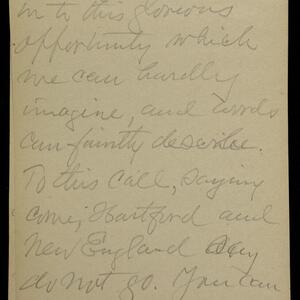 in to this glorious
opportunity which
we can hardly
imagine, and words
can faintly describe.
To this call, saying
come, Hartford and
New England say
do not go. You can